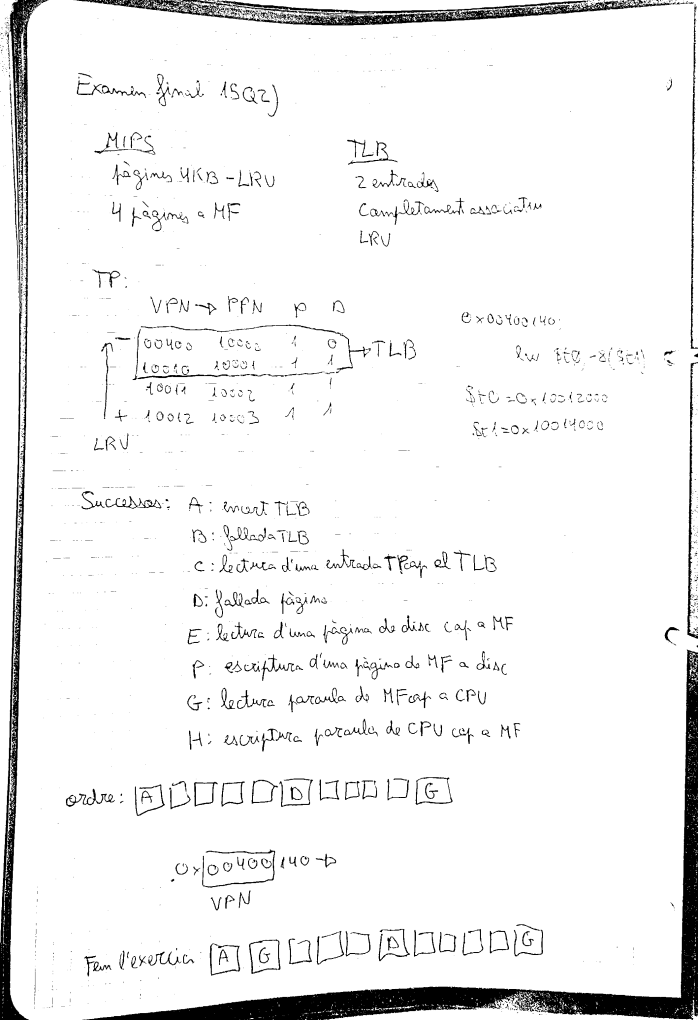 Examen final 15Q2)
MIPS
pàgines 4KB - LRU
4 pàgines a MF
TLB
2 entrades
Completament associativa
LRU
TP:
VPN → PPN P D
- 00400 10000 1 0
10010 10001 1 1
→ TLB
10011 10002 1 1
+ 10012 10003 1 1
LRU
0x00400140:
lw $t0, -8($t1)
$t0 = 0x10012000
$t1 = 0x10014000
Successos: A: encert TLB
B: fallada TLB
C: lectura d'una entrada TP cap el TLB
D: fallada pàgina
E: lectura d'una pàgina de disc cap a MF
F: escriptura d'una pàgina de MF a disc
G: lectura paraula de MF cap a CPU
H: escriptura paraula de CPU cap a MF
ordre: A D G
0x00400140 →
VPN
Fem l'exercici A G D G